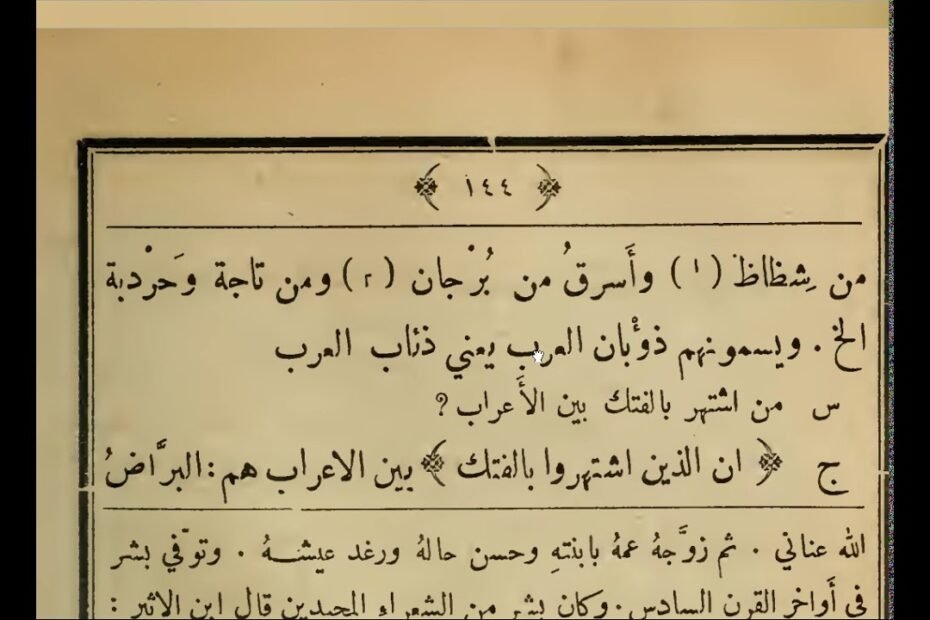 ﴿ ١٤٤ ﴾
من شِظاظ (١) وأَسرقُ من بُرْجان (٢) ومن تاجة وَحَرْدبة
الخ . ويسمونهم ذوْبان العرب يعني ذئاب العرب
س من اشتهر بالفتك بين الأَعراب ؟
ج ﴿ ان الذين اشتهروا بالفتك ﴾ بين الاعراب هم : البرَّاضُ
الله عناني . ثم زوَّجهُ عمهُ بابنتهِ وحسن حالهُ ورغد عيشهُ . وتوّفي بشر
في أَواخر القرن السادس . وكان بشر من الشعراء المجيدين قال ابن الاثير :